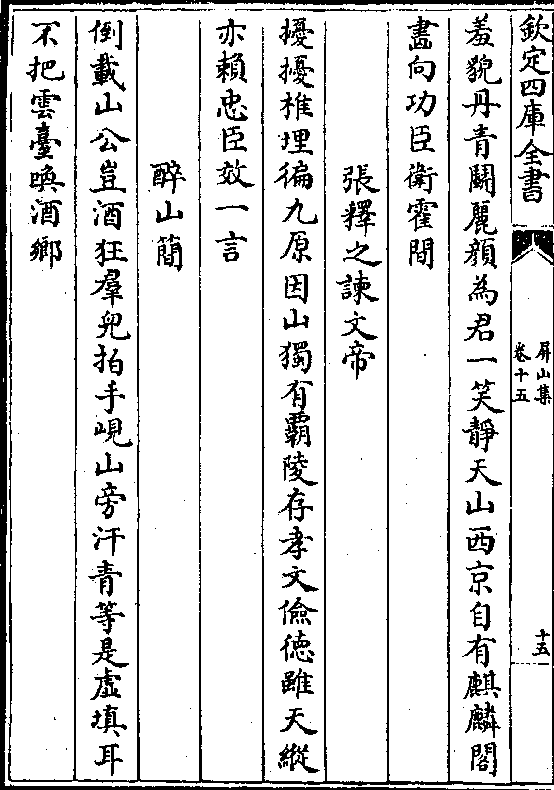 欽定四庫全書
屏山集
卷十五
十五
羞貌丹青鬭麗顔為君一笑靜天山西京自有麒麟閣
畵向功臣衛霍間
張釋之諫文帝
擾擾椎埋徧九原因山獨有霸陵存孝文儉德雖天縱
亦賴忠臣效一言
醉山簡
倒載山公豈酒狂羣兒拍手峴山旁汗青等是虛填耳
不把雲臺喚酒鄉